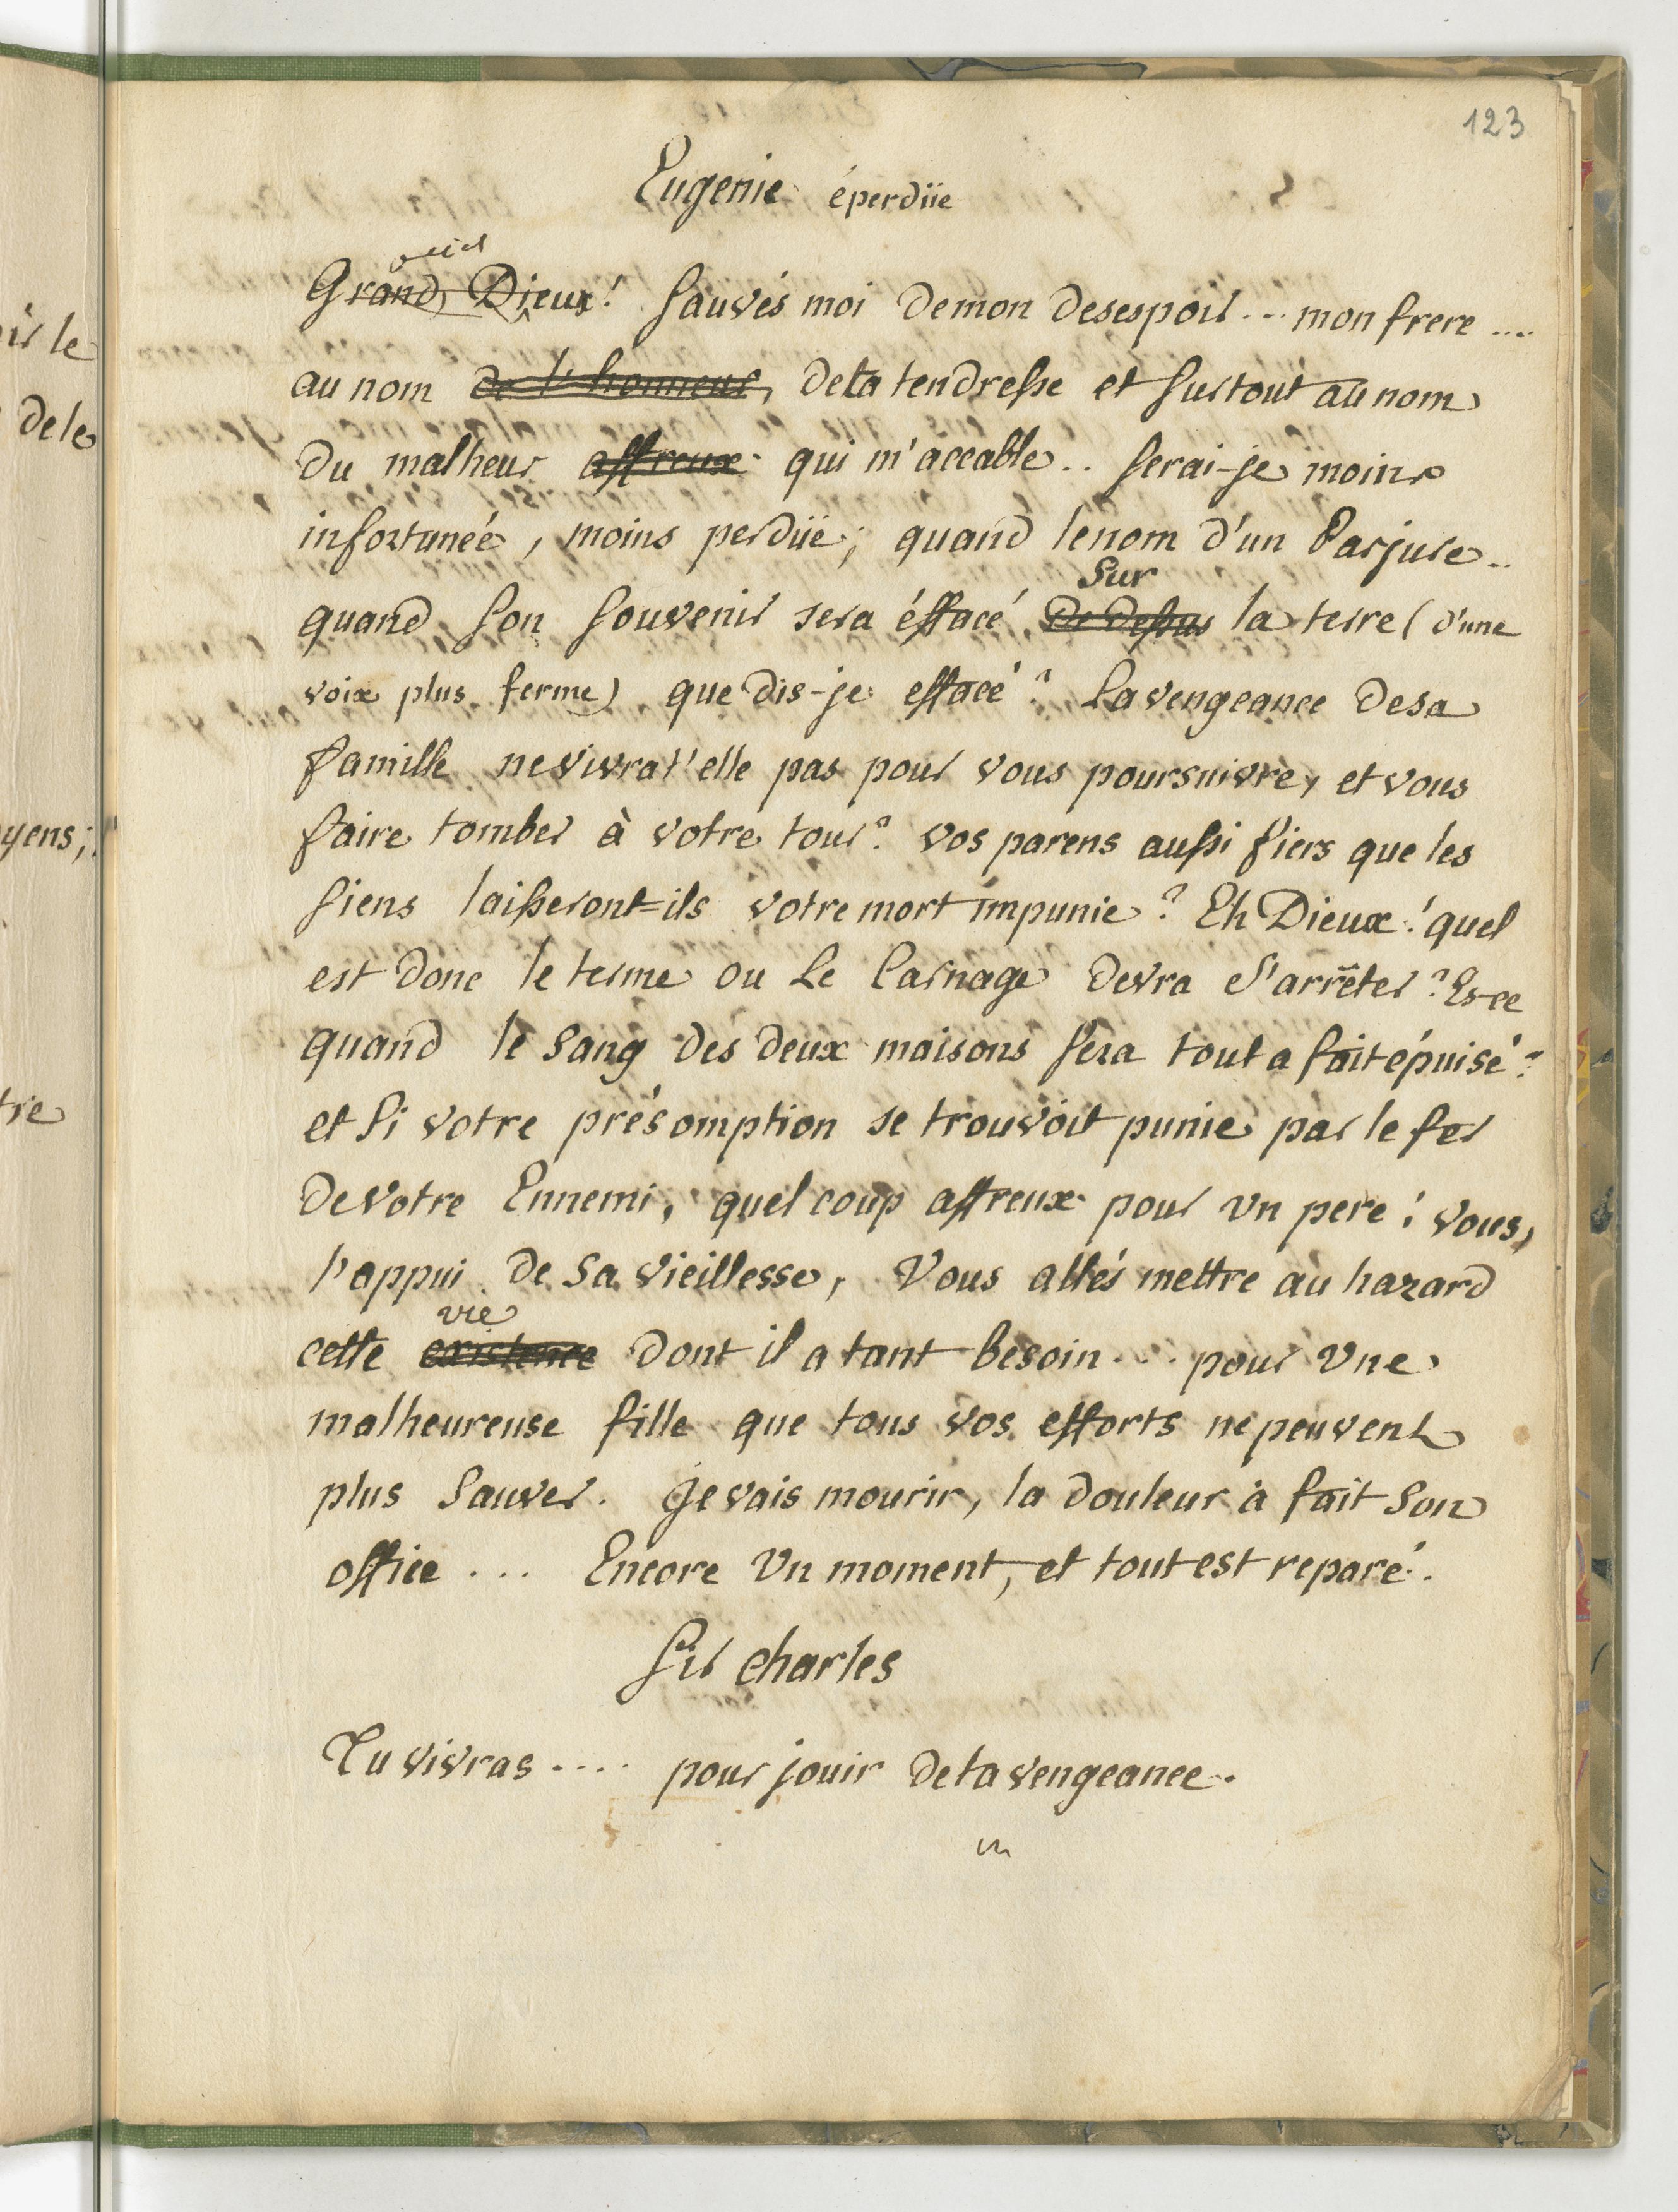 123
Eugenie éperdüe
ciel
Grand Dieux! Sauvés moi de mon desespoir... mon frere ....
au nom de l'honneur, de la tendresse et surtout au nom
du malheur affreux qui m'accable.. serai-je moins
infortunée, moins perdüe; quand le nom d'un Parjure..
Sur
quand son souvenir sera éffacé de dessus la terre (d'une
voix plus ferme) que dis-je effacé? La vengeance de sa
famille ne vivrat'elle pas pour vous poursuivre, et vous
faire tomber à votre tour? vos parens aussi fiers que les
siens laisseront-ils votre mort impunie? Eh Dieux! quel
est donc le terme ou Le Carnage devra s'arrêter? Es-ce
quand le sang des deux maisons sera tout a fait épuisé?
et si votre présomption se trouvoit punie par le fer
de votre Ennemi, quel coup affreux pour un pere! vous,
l'appui de sa vieillesse, Vous allés mettre au hazard
vie
cette existence dont il a tant besoin... pour une
malheureuse fille que tous vos efforts ne peuvent
plus sauver. Je vais mourir, la douleur à fait son
office ... Encore un moment, et tout est reparé.
Sir Charles
Tu vivras .... pour jouir de ta vengeance.
ir le
de le
yens;
tre